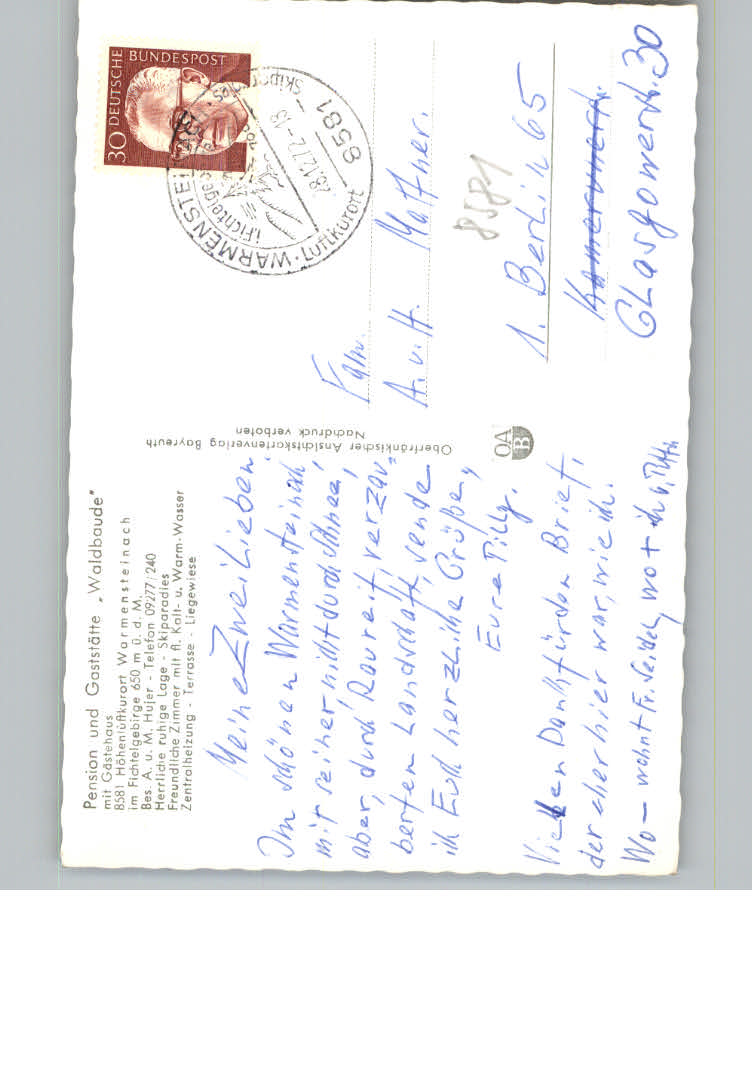 Pension und Gaststätte „Waldbaude"
mit Gästehaus
8581 Höhenluftkurort Warmensteinach
im Fichtelgebirge 650 m ü. d. M.
Bes. A. u. M. Hujer - Telefon 09277/240
Herrliche ruhige Lage - Skiparadies
Freundliche Zimmer mit fl. Kalt- u. Warm-Wasser
Zentralheizung - Terrasse - Liegewiese
Meine Zwei Lieben.
Im schönen Warmensteinach
mit seiner nicht durch Schnee,
aber, durch Raureif, verzau=
berten Landschaft, sende
ich Euch herzliche Grüße,
Eure Tilly.
Vielen Dank für den Brief,
der eher hier war, wie ich.
Wo – wohnt Fr. Seidel, wo +
Oberfränkischer Ansichtskartenverlag Bayreuth
Nachdruck verboten
OA
B
30 DEUTSCHE BUNDESPOST
8581
WARMENSTEI
Luftkurort
28.12.72-18
(Fichtelge
Fam.
A. u. H. Mattner.
8581
1. Berlin 65
Kamerunerstr.
Glasgowerstr. 30